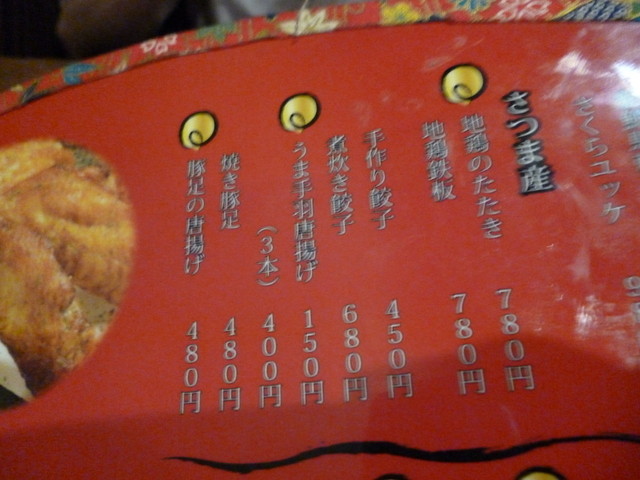 さくらユッケ
さつま産
地鶏のたたき 780円
地鶏鉄板 780円
手作り餃子 450円
煮炊き餃子 680円
うま手羽唐揚げ 150円
(3本) 400円
焼き豚足 480円
豚足の唐揚げ 480円